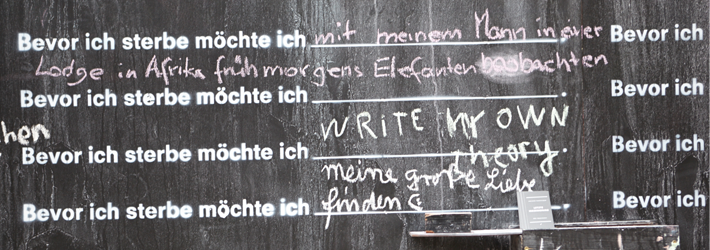 Bevor ich sterbe möchte ich mit meinem Mann in einer Bevor ich
Lodge in Afrika früh morgens Elefanten beobachten
Bevor ich sterbe möchte ich . Bevor ich
WRiTE MY OWN
hen
Bevor ich sterbe möchte ich theory. Bevor ich
meine große Liebe
Bevor ich sterbe möchte ich finden Bevor ich